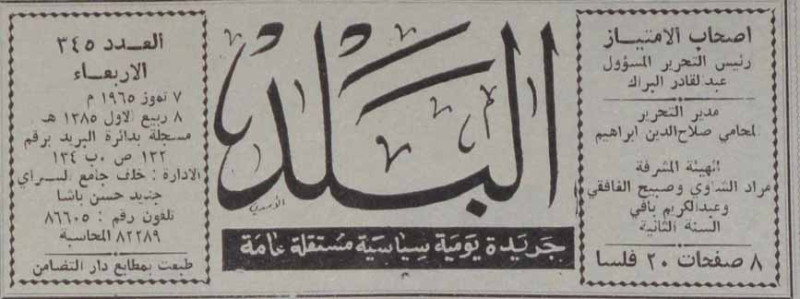 اصحاب الامتياز
رئيس التحرير المسؤول
عبدالقادر البراك
مدير التحرير
المحامي صلاح الدين ابراهيم
الهيئة المشرفة
مراد الشاوي وصبيح الغافقي
وعبدالكريم بافي
السنة الثانية
٨ صفحات ٢٠ فلسا
البلد
جريدة يومية سياسية مستقلة عامة
العدد ٣٤٥
الاربعاء
٧ تموز ١٩٦٥ م
٨ ربيع الاول ١٣٨٥ هـ
مسجلة بدائرة البريد برقم
١٣٢ ص ٠ب ١٣٤
الادارة : خلف جامع السراي
جديد حسن باشا
تلفون رقم : ٨٦٦٠٥
٨٢٢٨٩ المحاسبة
طبعت بمطابع دار التضامن